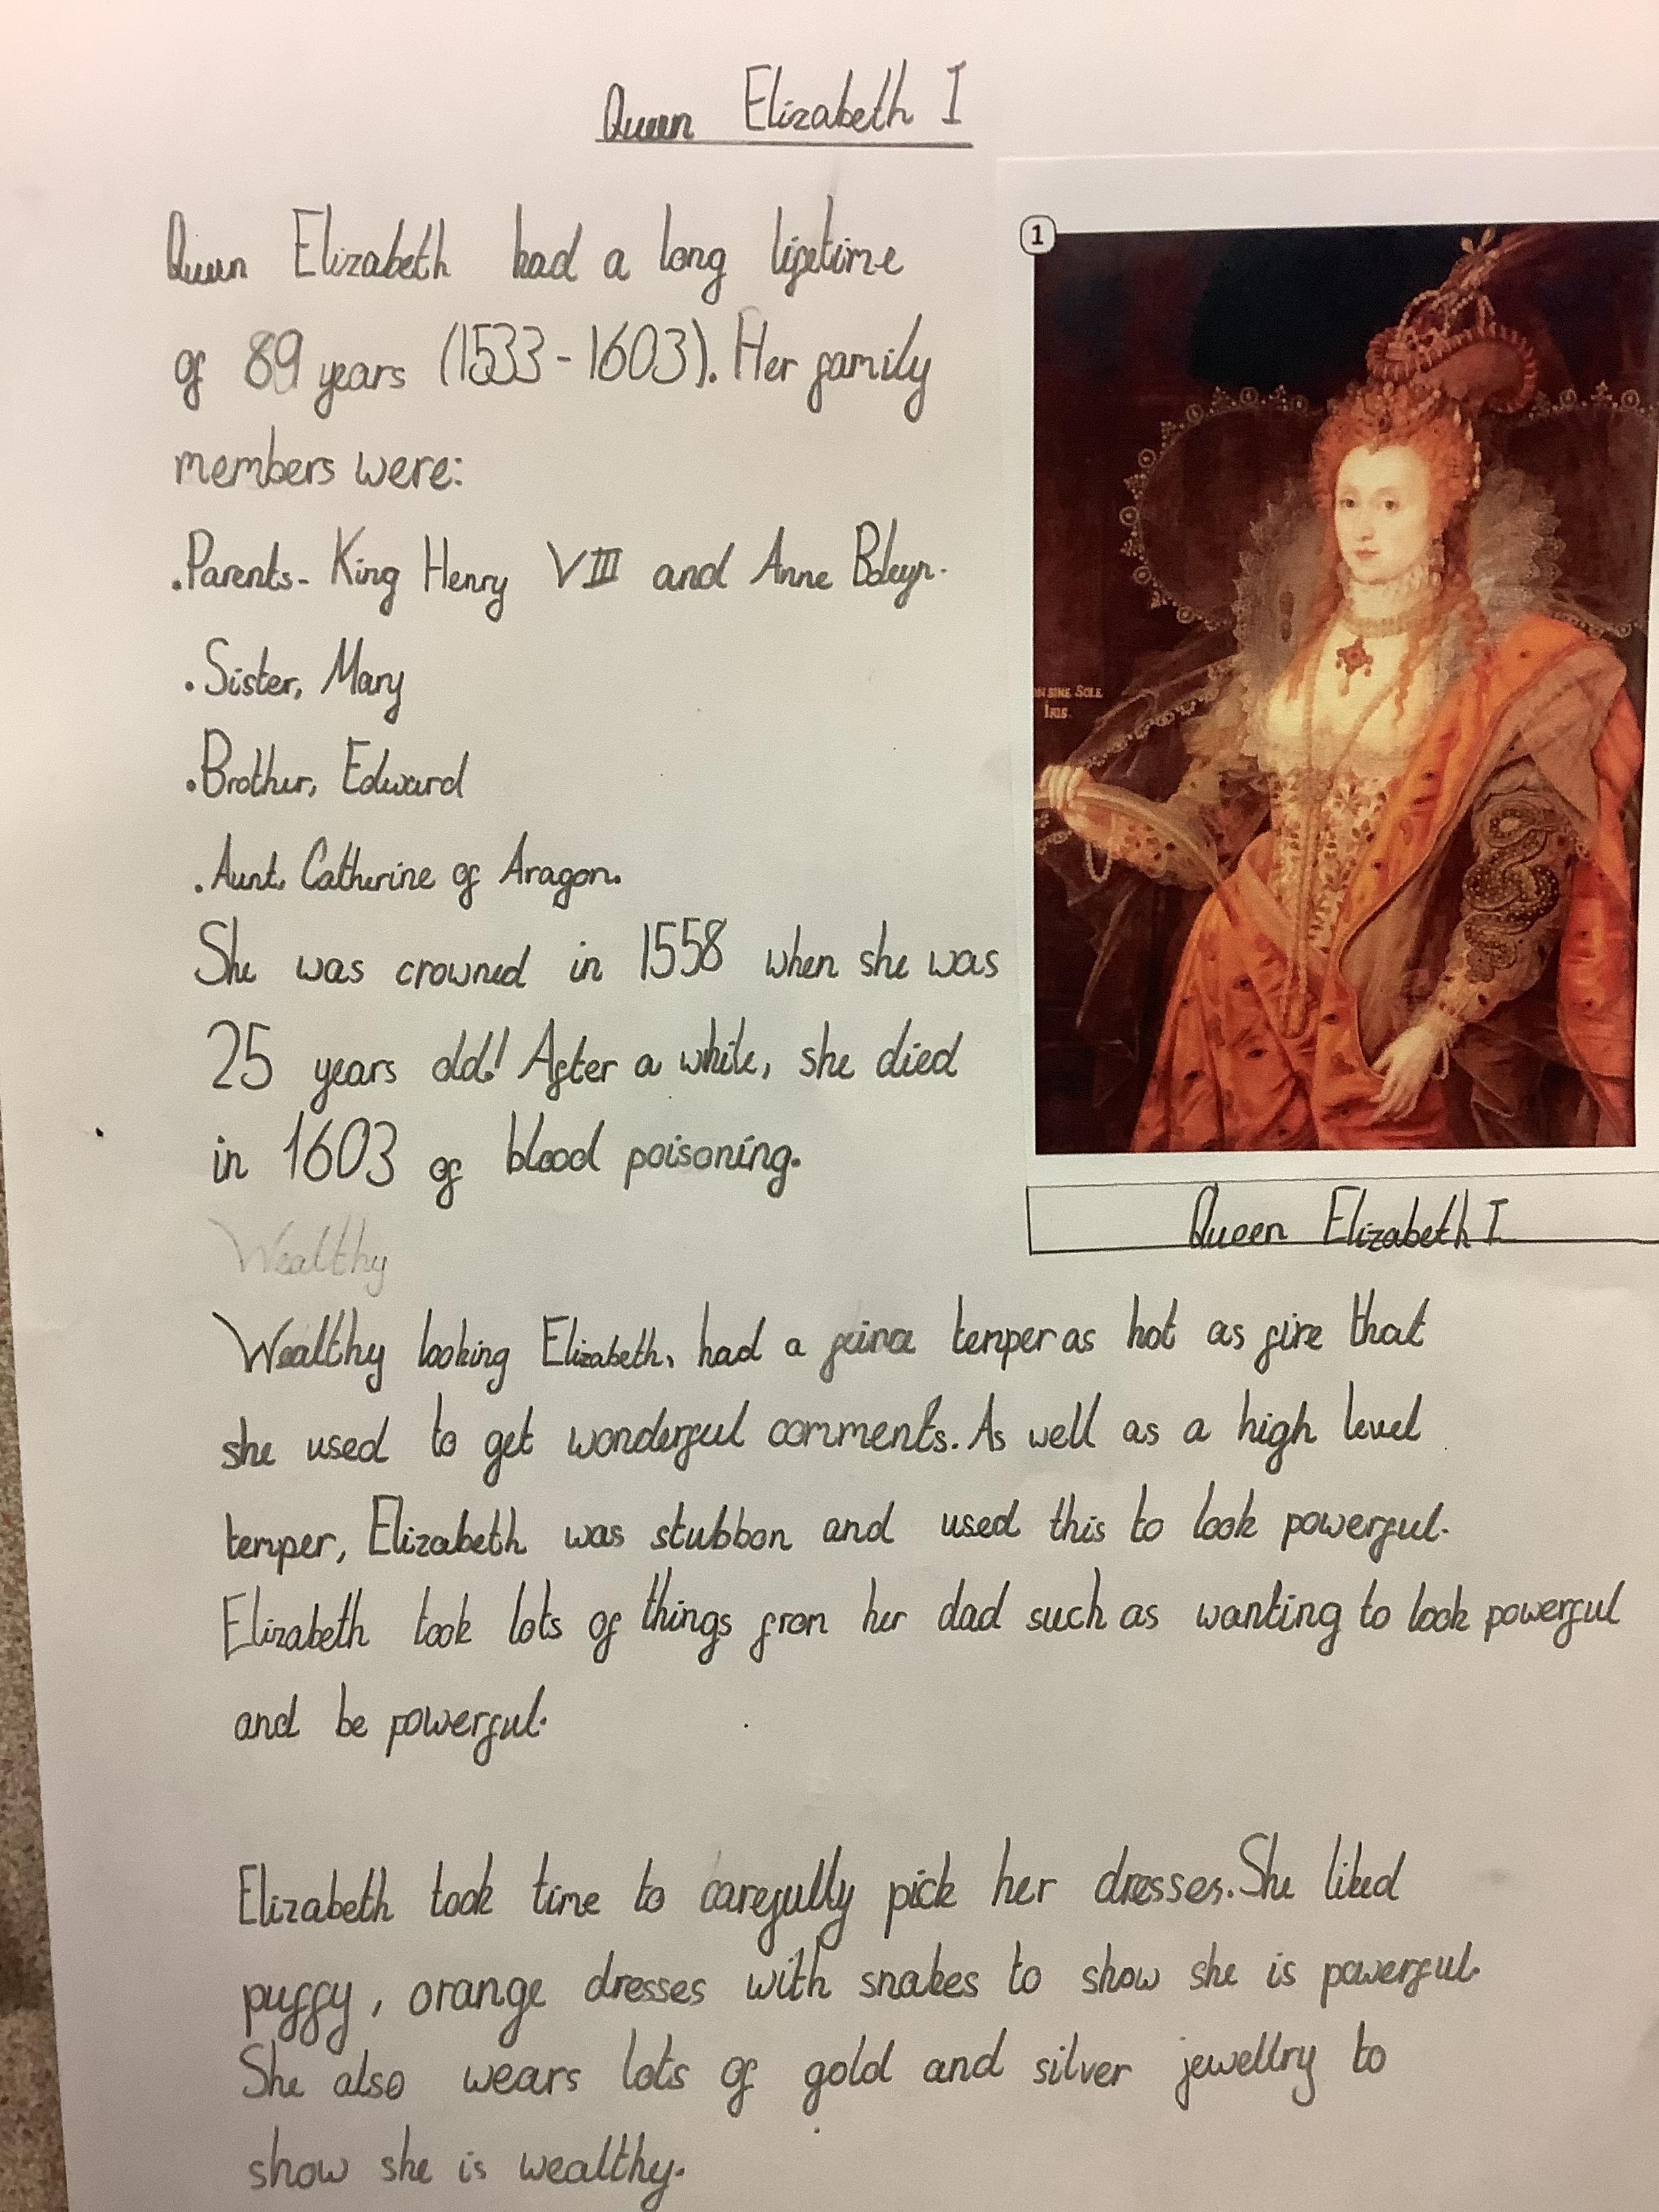 Queen Elizabeth I
Queen Elizabeth had a long lifetime
of 89 years (1533-1603). Her family
members were:
.Parents- King Henry VIII and Anne Boleyn.
.Sister, Mary
.Brother, Edward
.Aunt, Catherine of Aragon.
She was crowned in 1558 when she was
25 years old! After a while, she died
in 1603 of blood poisoning.
Wealthy
Wealthy looking Elizabeth, had a temper as hot as fire that
she used to get wonderful comments. As well as a high level
temper, Elizabeth was stubbon and used this to look powerful.
Elizabeth took lots of things from her dad such as wanting to look powerful
and be powerful.
Elizabeth took time to carefully pick her dresses. She liked
puffy, orange dresses with snakes to show she is powerful.
She also wears lots of gold and silver jewellry to
show she is wealthy.
1
SINE SOLE
IRIS
Queen Elizabeth I